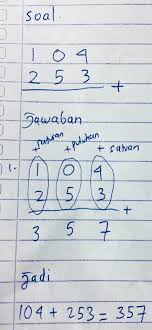 Soal.
1 0 4
2 5 3 +
Jawaban
+ratusan +puluhan + satuan
1. 1 0 4
2 5 3 +
3 5 7
Jadi
104 + 253 = 357